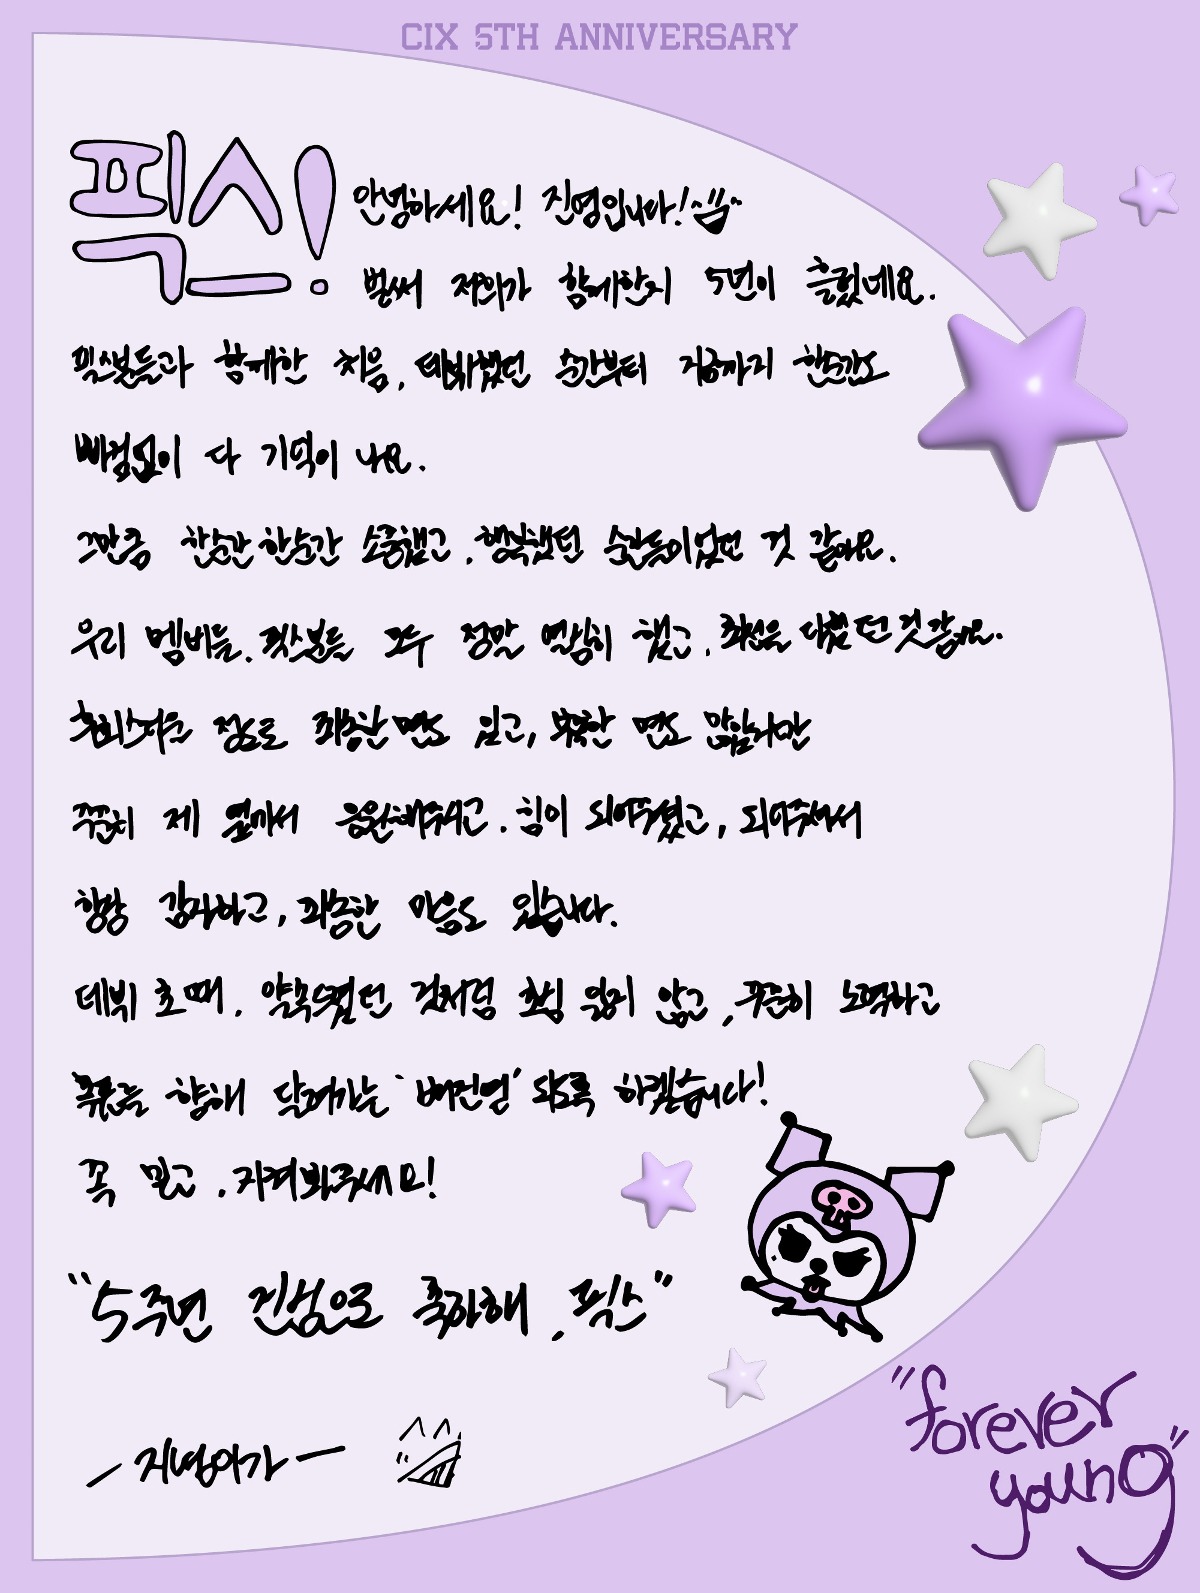 CIX 5TH ANNIVERSARY
픽스! 안녕하세요! 진영입니다!
벌써 저희가 함께한지 5년이 흘렀네요.
픽스분들과 함께한 처음, 데뷔했던 순간부터 지금까지 한순간도
빠짐없이 다 기억이 나요.
그만큼 한순간 한순간 소중했고, 행복했던 순간들이었던 것 같아요.
우리 멤버들, 픽스분들 모두 정말 열심히 했고, 최선을 다했던 것 같아요.
정도로 죄송한 면도 있고, 부족한 면도 많았지만
꾸준히 제 옆에서 응원해주시고, 힘이 되어주셨고, 되어주셔서
항상 감사하고, 죄송한 마음도 있습니다.
데뷔 초 때, 약속드렸던 것처럼 초심 잃지 않고, 꾸준히 노력하고
목표를 향해 달려가는 '배진영' 되도록 하겠습니다!
꼭 믿고, 지켜봐주세요!
"5주년 진심으로 축하해, 픽스"
- 지녕이가 -
"forever
young"